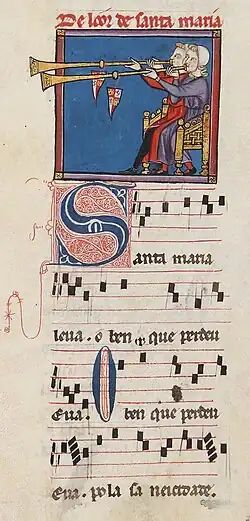 De loor de santa maria
Santa maria
leua. o ben que perdeu
Eua. o ben que perdeu
Eua. pola sa neicidade.